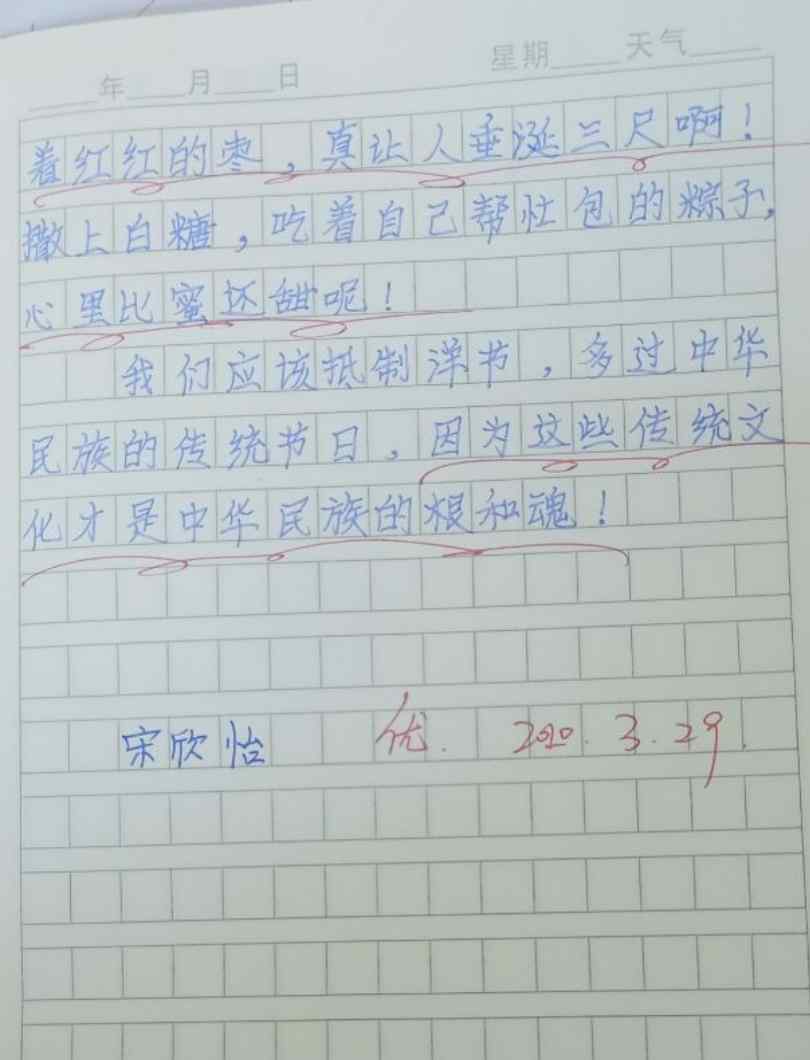 年 月 日 星期 天气
着红红的枣，真让人垂涎三尺啊！
撒上白糖，吃着自己帮忙包的粽子，
心里比蜜还甜呢！
我们应该抵制洋节，多过中华
民族的传统节日，因为这些传统文
化才是中华民族的根和魂！
宋欣怡 优. 2020.3.29.